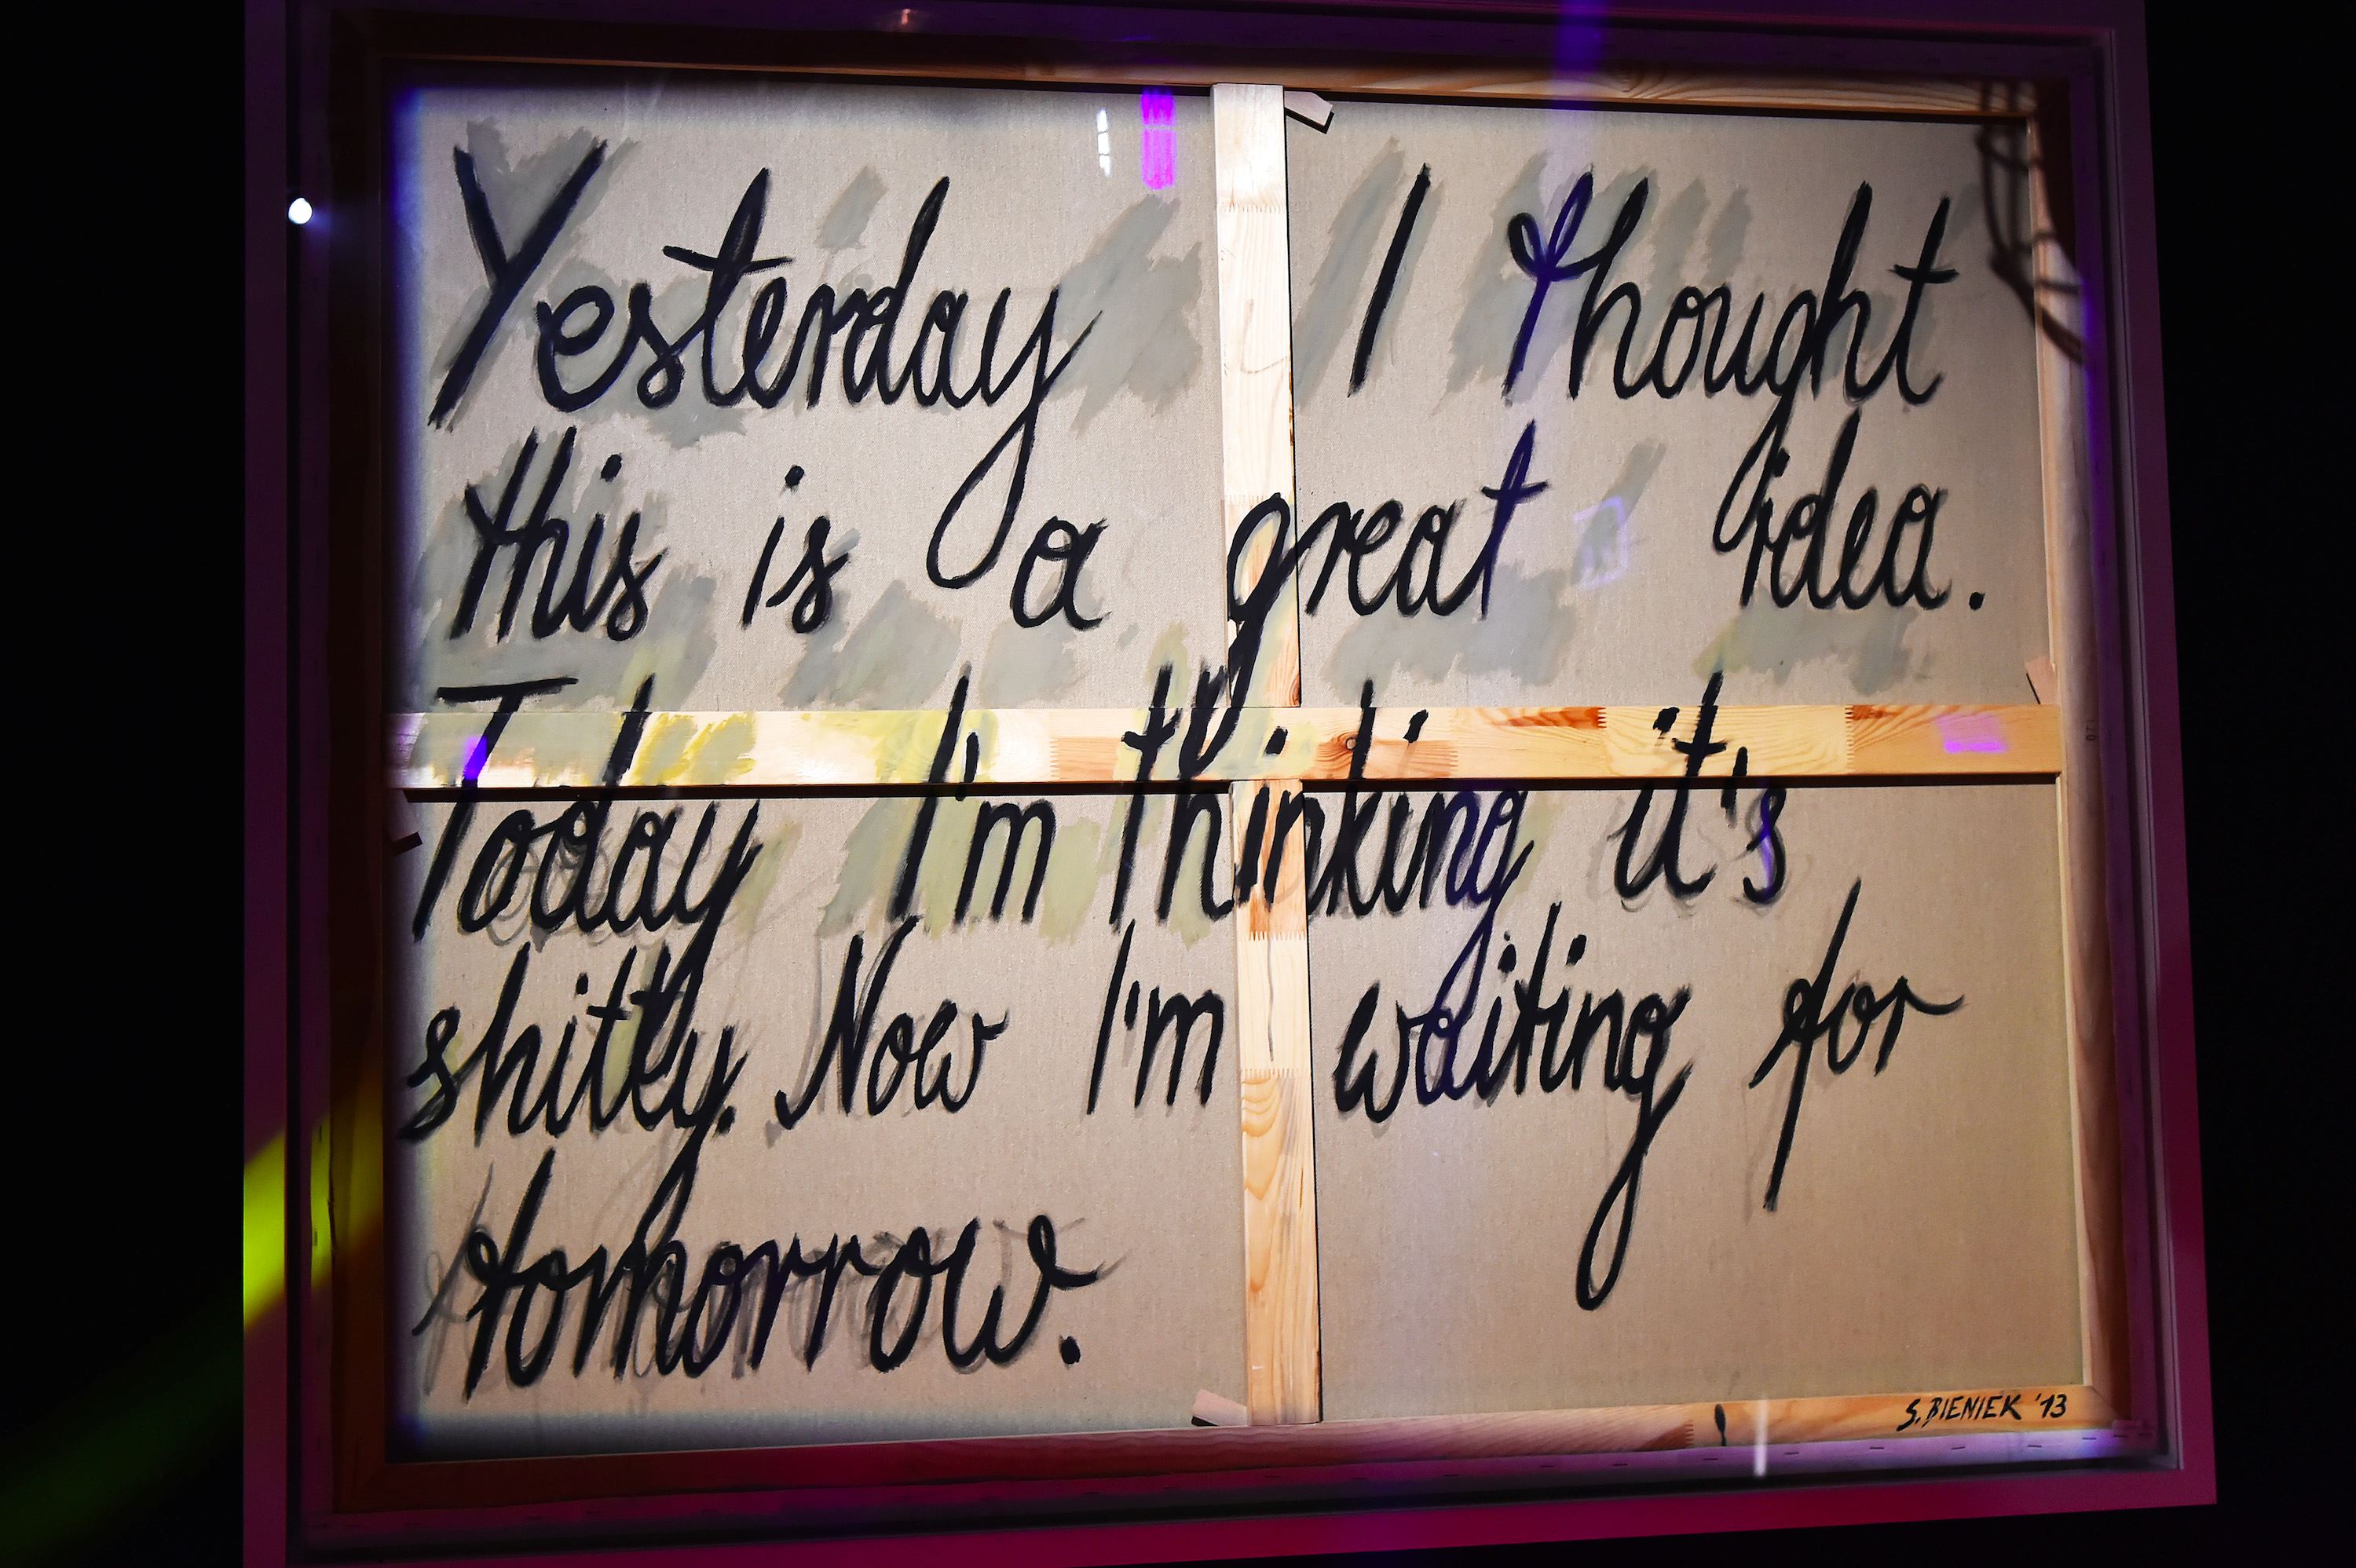 Yesterday I thought
this is a great idea.
Today I'm thinking it's
shitty. Now I'm waiting for
tomorrow.
S. BIENIEK '13